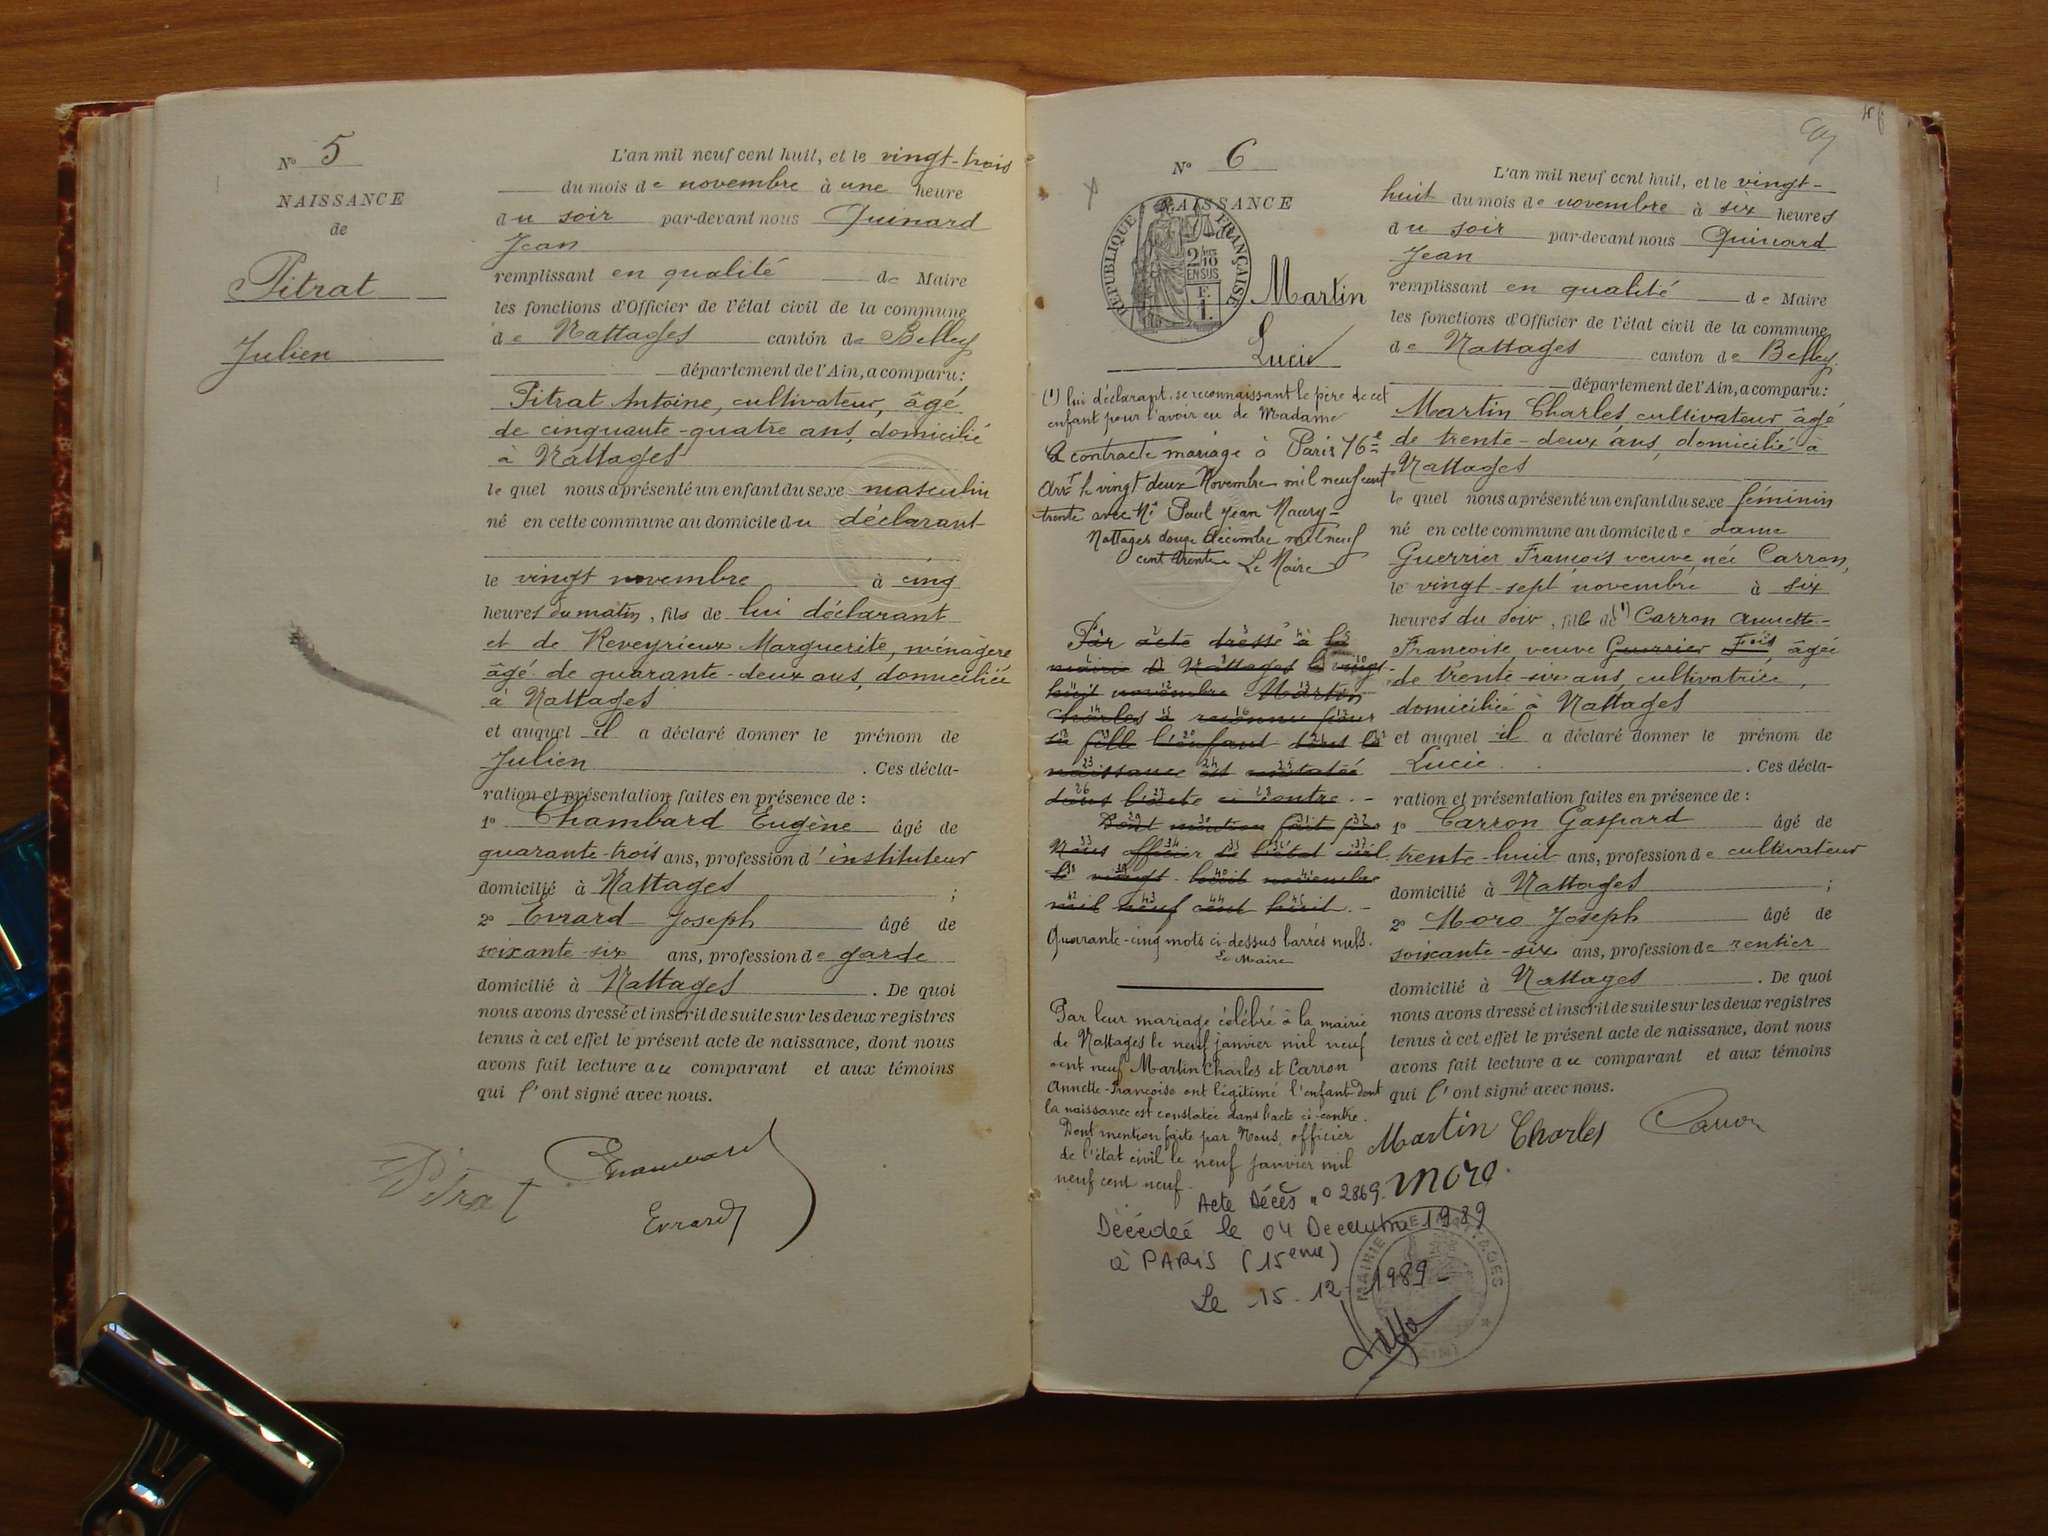 N° 5
NAISSANCE
de
Pitrat
Julien
L'an mil neuf cent huit, et le vingt-trois
du mois de novembre à une heure
du soir par-devant nous Quinard
Jean
remplissant en qualité de Maire
les fonctions d'Officier de l'état civil de la commune
de Nattages canton de Belley
département de l'Ain, a comparu:
Pitrat Antoine, cultivateur, âgé
de cinquante-quatre ans, domicilié
à Nattages
le quel nous a présenté un enfant du sexe masculin
né en cette commune au domicile du déclarant
le vingt novembre à cinq
heures du matin, fils de lui déclarant
et de Reveyrieux Marguerite, ménagère
âgé de quarante-deux ans, domiciliée
à Nattages
et auquel il a déclaré donner le prénom de
Julien . Ces décla-
ration et présentation faites en présence de :
1° Chambard Eugène âgé de
quarante-trois ans, profession d'instituteur
domicilié à Nattages ;
2° Evrard Joseph âgé de
soixante-six ans, profession de garde
domicilié à Nattages . De quoi
nous avons dressé et inscrit de suite sur les deux registres
tenus à cet effet le présent acte de naissance, dont nous
avons fait lecture au comparant et aux témoins
qui l'ont signé avec nous.
Pitrat
Evrard
N° 6
NAISSANCE
de
RÉPUBLIQUE FRANÇAISE
2/10
EN SUS
F.
1.
Martin
Lucie
(1) lui déclarant, se reconnaissant le père de cet
enfant pour l'avoir eu de Madame
A contracté mariage à Paris 16e
Arrt le vingt deux Novembre mil neuf cent
trente avec Mr Paul Jean Maury -
Nattages douze décembre mil neuf
cent trente Le Maire
Par acte dressé à la
mairie de Nattages le vingt
huit novembre Martin
Charles a reconnu pour
sa fille l'enfant dont la
naissance est constatée
dans l'acte ci-contre. -
Dont mention fait par
Nous officier de l'état civil
le vingt-huit novembre
mil neuf cent huit. -
Quarante-cinq mots ci-dessus barrés nuls.
Le Maire
Par leur mariage célébré à la mairie
de Nattages le neuf janvier mil neuf
cent neuf Martin Charles et Carron
Annette-Françoise ont légitimé l'enfant dont
la naissance est constatée dans l'acte ci-contre.
Dont mention faite par Nous, officier
de l'état civil le neuf janvier mil
neuf cent neuf.
L'an mil neuf cent huit, et le vingt-
huit du mois de novembre à six heures
du soir par-devant nous Quinard
Jean
remplissant en qualité de Maire
les fonctions d'Officier de l'état civil de la commune
de Nattages canton de Belley
département de l'Ain, a comparu:
Martin Charles, cultivateur, âgé
de trente-deux ans, domicilié à
Nattages
le quel nous a présenté un enfant du sexe féminin
né en cette commune au domicile de dame
Guerrier François veuve née Carron,
le vingt-sept novembre à six
heures du soir, fille de (1) Carron Annette-
Francoise, veuve Guerrier Fois, âgée
de trente-six ans, cultivatrice,
domiciliée à Nattages
et auquel il a déclaré donner le prénom de
Lucie . Ces décla-
ration et présentation faites en présence de :
1° Carron Gaspard âgé de
trente-huit ans, profession de cultivateur
domicilié à Nattages ;
2° Moro Joseph âgé de
soixante-six ans, profession de rentier
domicilié à Nattages . De quoi
nous avons dressé et inscrit de suite sur les deux registres
tenus à cet effet le présent acte de naissance, dont nous
avons fait lecture au comparant et aux témoins
qui l'ont signé avec nous.
Martin Charles Carron
Moro
Acte Décès n° 2869
Décédée le 04 Decembre 1989
à PARIS (15eme)
Le 15-12-1989-
MAIRIE DE NATTAGES